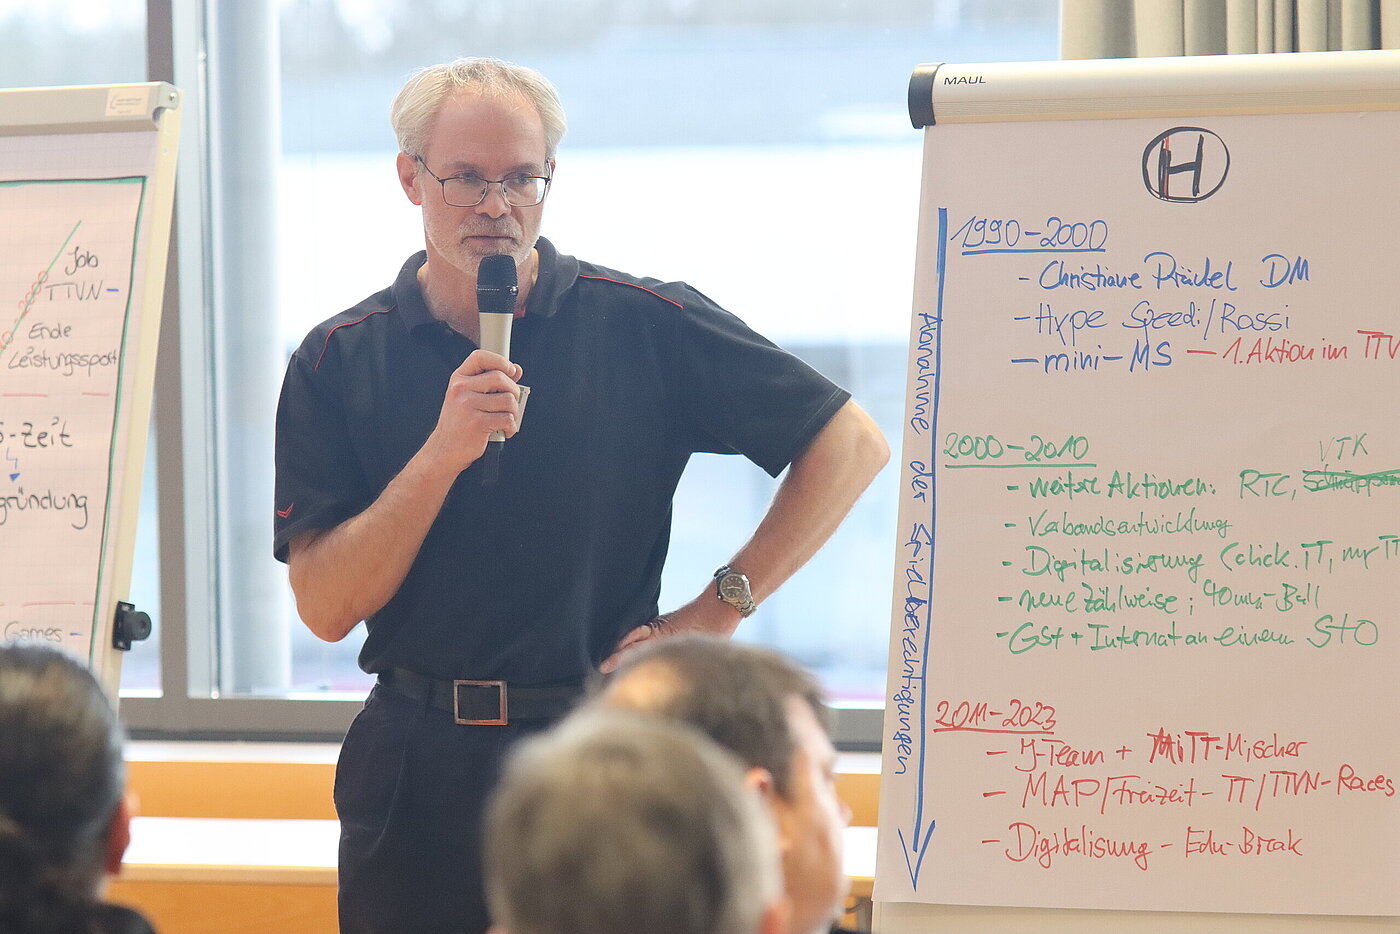 Job
TTVN-
Ende
Leistungssport
S-Zeit
gründung
Games-
MAUL
H
1990-2000
- Christiane Präckel DM
- Hype Speedi/Rossi
- mini-MS - 1. Aktion im TTV
2000-2010
VTK
- weitere Aktionen: RTC,
- Verbandsentwicklung
- Digitalisierung (click.TT, my TT
- neue Zählweise; 40mm-Ball
- GSt + Internat an einem STO
2011-2023
- J-Team + MiTT-Mischer
- MAP/Freizeit-TT/TTVN-Races
- Digitalisung - Edu-Break
Abnahme der Spielberechtigungen